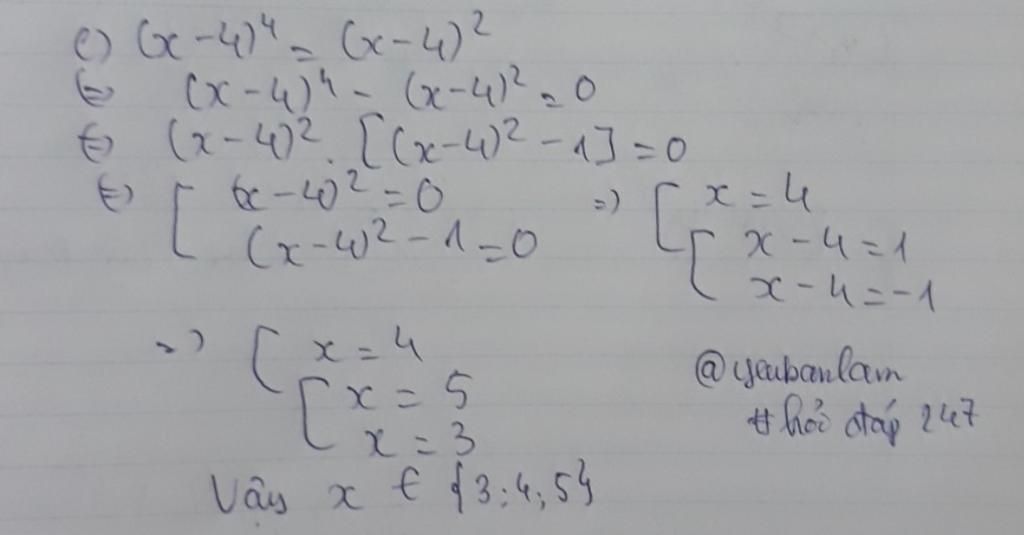 e) (x-4)⁴ = (x-4)²
⇔ (x-4)⁴ - (x-4)² = 0
⇔ (x-4)². [(x-4)² - 1] = 0
⇔ [ (x-4)² = 0 => [ x = 4
(x-4)² - 1 = 0 [ x - 4 = 1
x - 4 = -1
=> [ x = 4
[ x = 5
x = 3
@yeubanlam
# hỏi đáp 247
Vậy x ∈ {3;4;5}